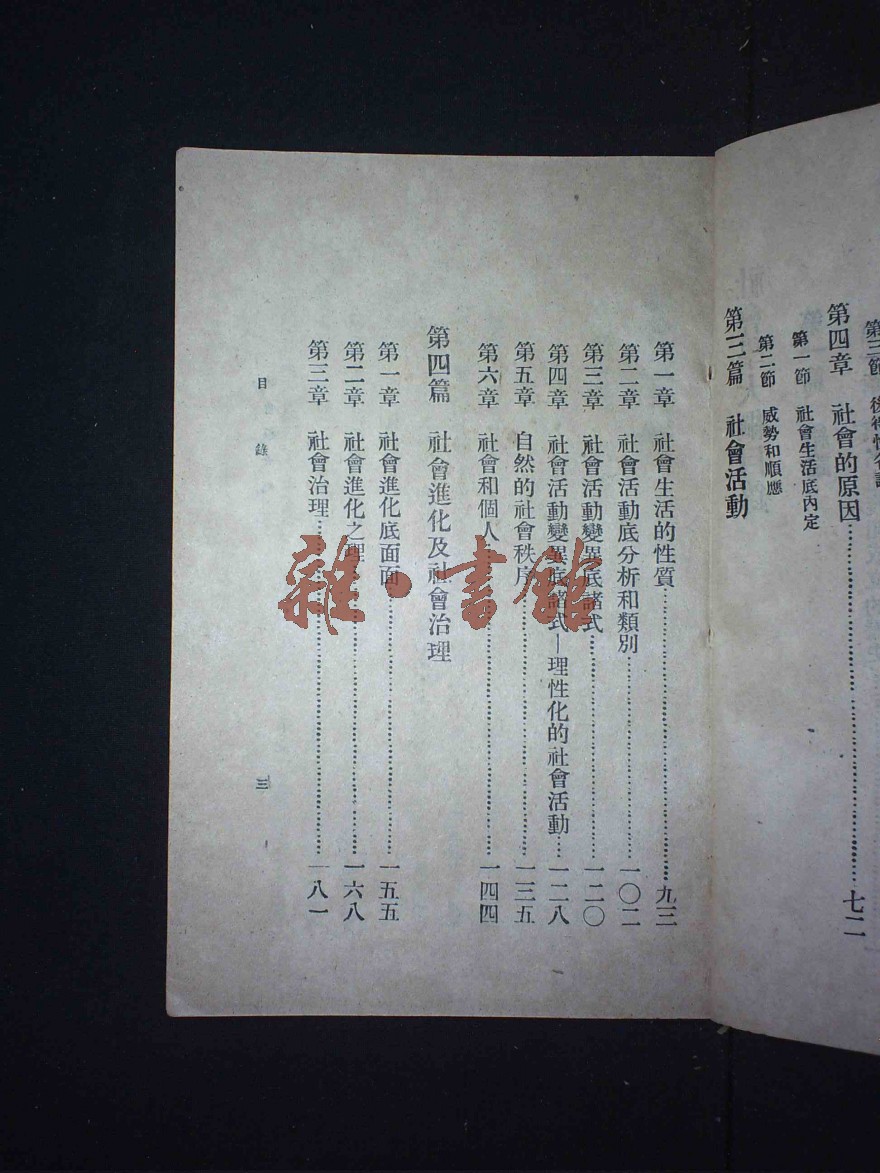 第三節 後得性
第四章 社會的原因……七二
第一節 社會生活底內定
第二節 威勢和順應
第三篇 社會活動
第一章 社會生活的性質……九三
第二章 社會活動底分析和類別……一〇二
第三章 社會活動變異底諸式……一二〇
第四章 社會活動變異底諸式—理性化的社會活動……一二八
第五章 自然的社會秩序……一三五
第六章 社會和個人……一四四
第四篇 社會進化及社會治理
第一章 社會進化底面面……一五五
第二章 社會進化之理……一六八
第三章 社會治理……一八一
目錄
三
雜·書館